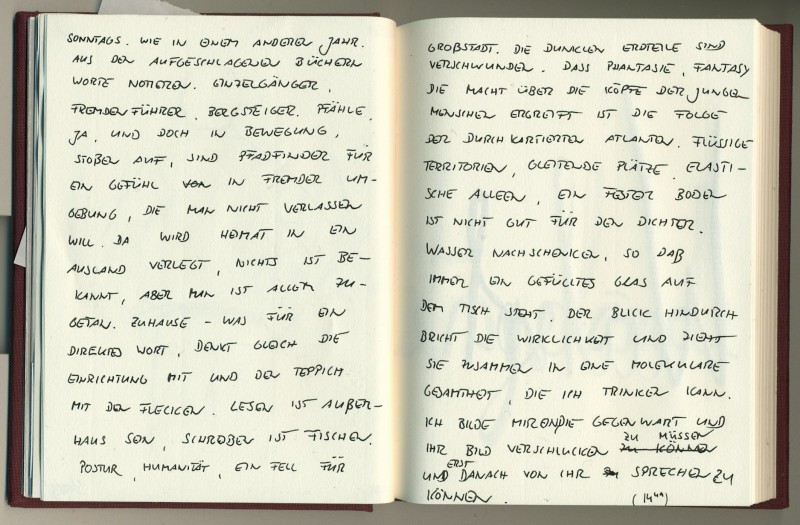 SONNTAGS. WIE IN EINEM ANDEREN JAHR.
AUS DEN AUFGESCHLAGENEN BÜCHERN
WORTE NOTIEREN. EINZELGÄNGER,
FREMDENFÜHRER, BERGSTEIGER. PFÄHLE,
JA, UND DOCH IN BEWEGUNG,
STOßEN AUF, SIND PFADFINDER FÜR
EIN GEFÜHL VON IN FREMDER UM-
GEBUNG, DIE MAN NICHT VERLASSEN
WILL. DA WIRD HEIMAT IN EIN
AUSLAND VERLEGT, NICHTS IST BE-
KANNT, ABER MAN IST ALLEM ZU-
GETAN. ZUHAUSE - WAS FÜR EIN
DIREKTES WORT, DENKT GLEICH DIE
EINRICHTUNG MIT UND DEN TEPPICH
MIT DEN FLECKEN. LESEN IST AUßER-
HAUS SEIN, SCHREIBEN IST FISCHEN.
POSTUR, HUMANITÄT, EIN FELL FÜR
GROßSTADT. DIE DUNKLEN ERDTEILE SIND
VERSCHWUNDEN. DASS PHANTASIE, FANTASY
DIE MACHT ÜBER DIE KÖPFE DER JUNGEN
MENSCHEN ERGREIFT IST DIE FOLGE
DER DURCHKARTIERTEN ATLANTEN. FLÜSSIGE
TERRITORIEN, GLEITENDE PLÄTZE. ELASTI-
SCHE ALLEEN, EIN FESTER BODEN
IST NICHT GUT FÜR DEN DICHTER.
WASSER NACHSCHENKEN, SO DAß
IMMER EIN GEFÜLLTES GLAS AUF
DEM TISCH STEHT. DER BLICK HINDURCH
BRICHT DIE WIRKLICHKEIT UND ZIEHT
SIE ZUSAMMEN IN EINE MOLEKULARE
GESAMTHEIT, DIE ICH TRINKEN KANN.
ICH BILDE MIR EIN DIE GEGENWART UND
IHR BILD VERSCHLUCKEN ZU KÖNNEN ZU MÜSSEN
UND ERST DANACH VON IHR ZU SPRECHEN ZU
KÖNNEN. (144)